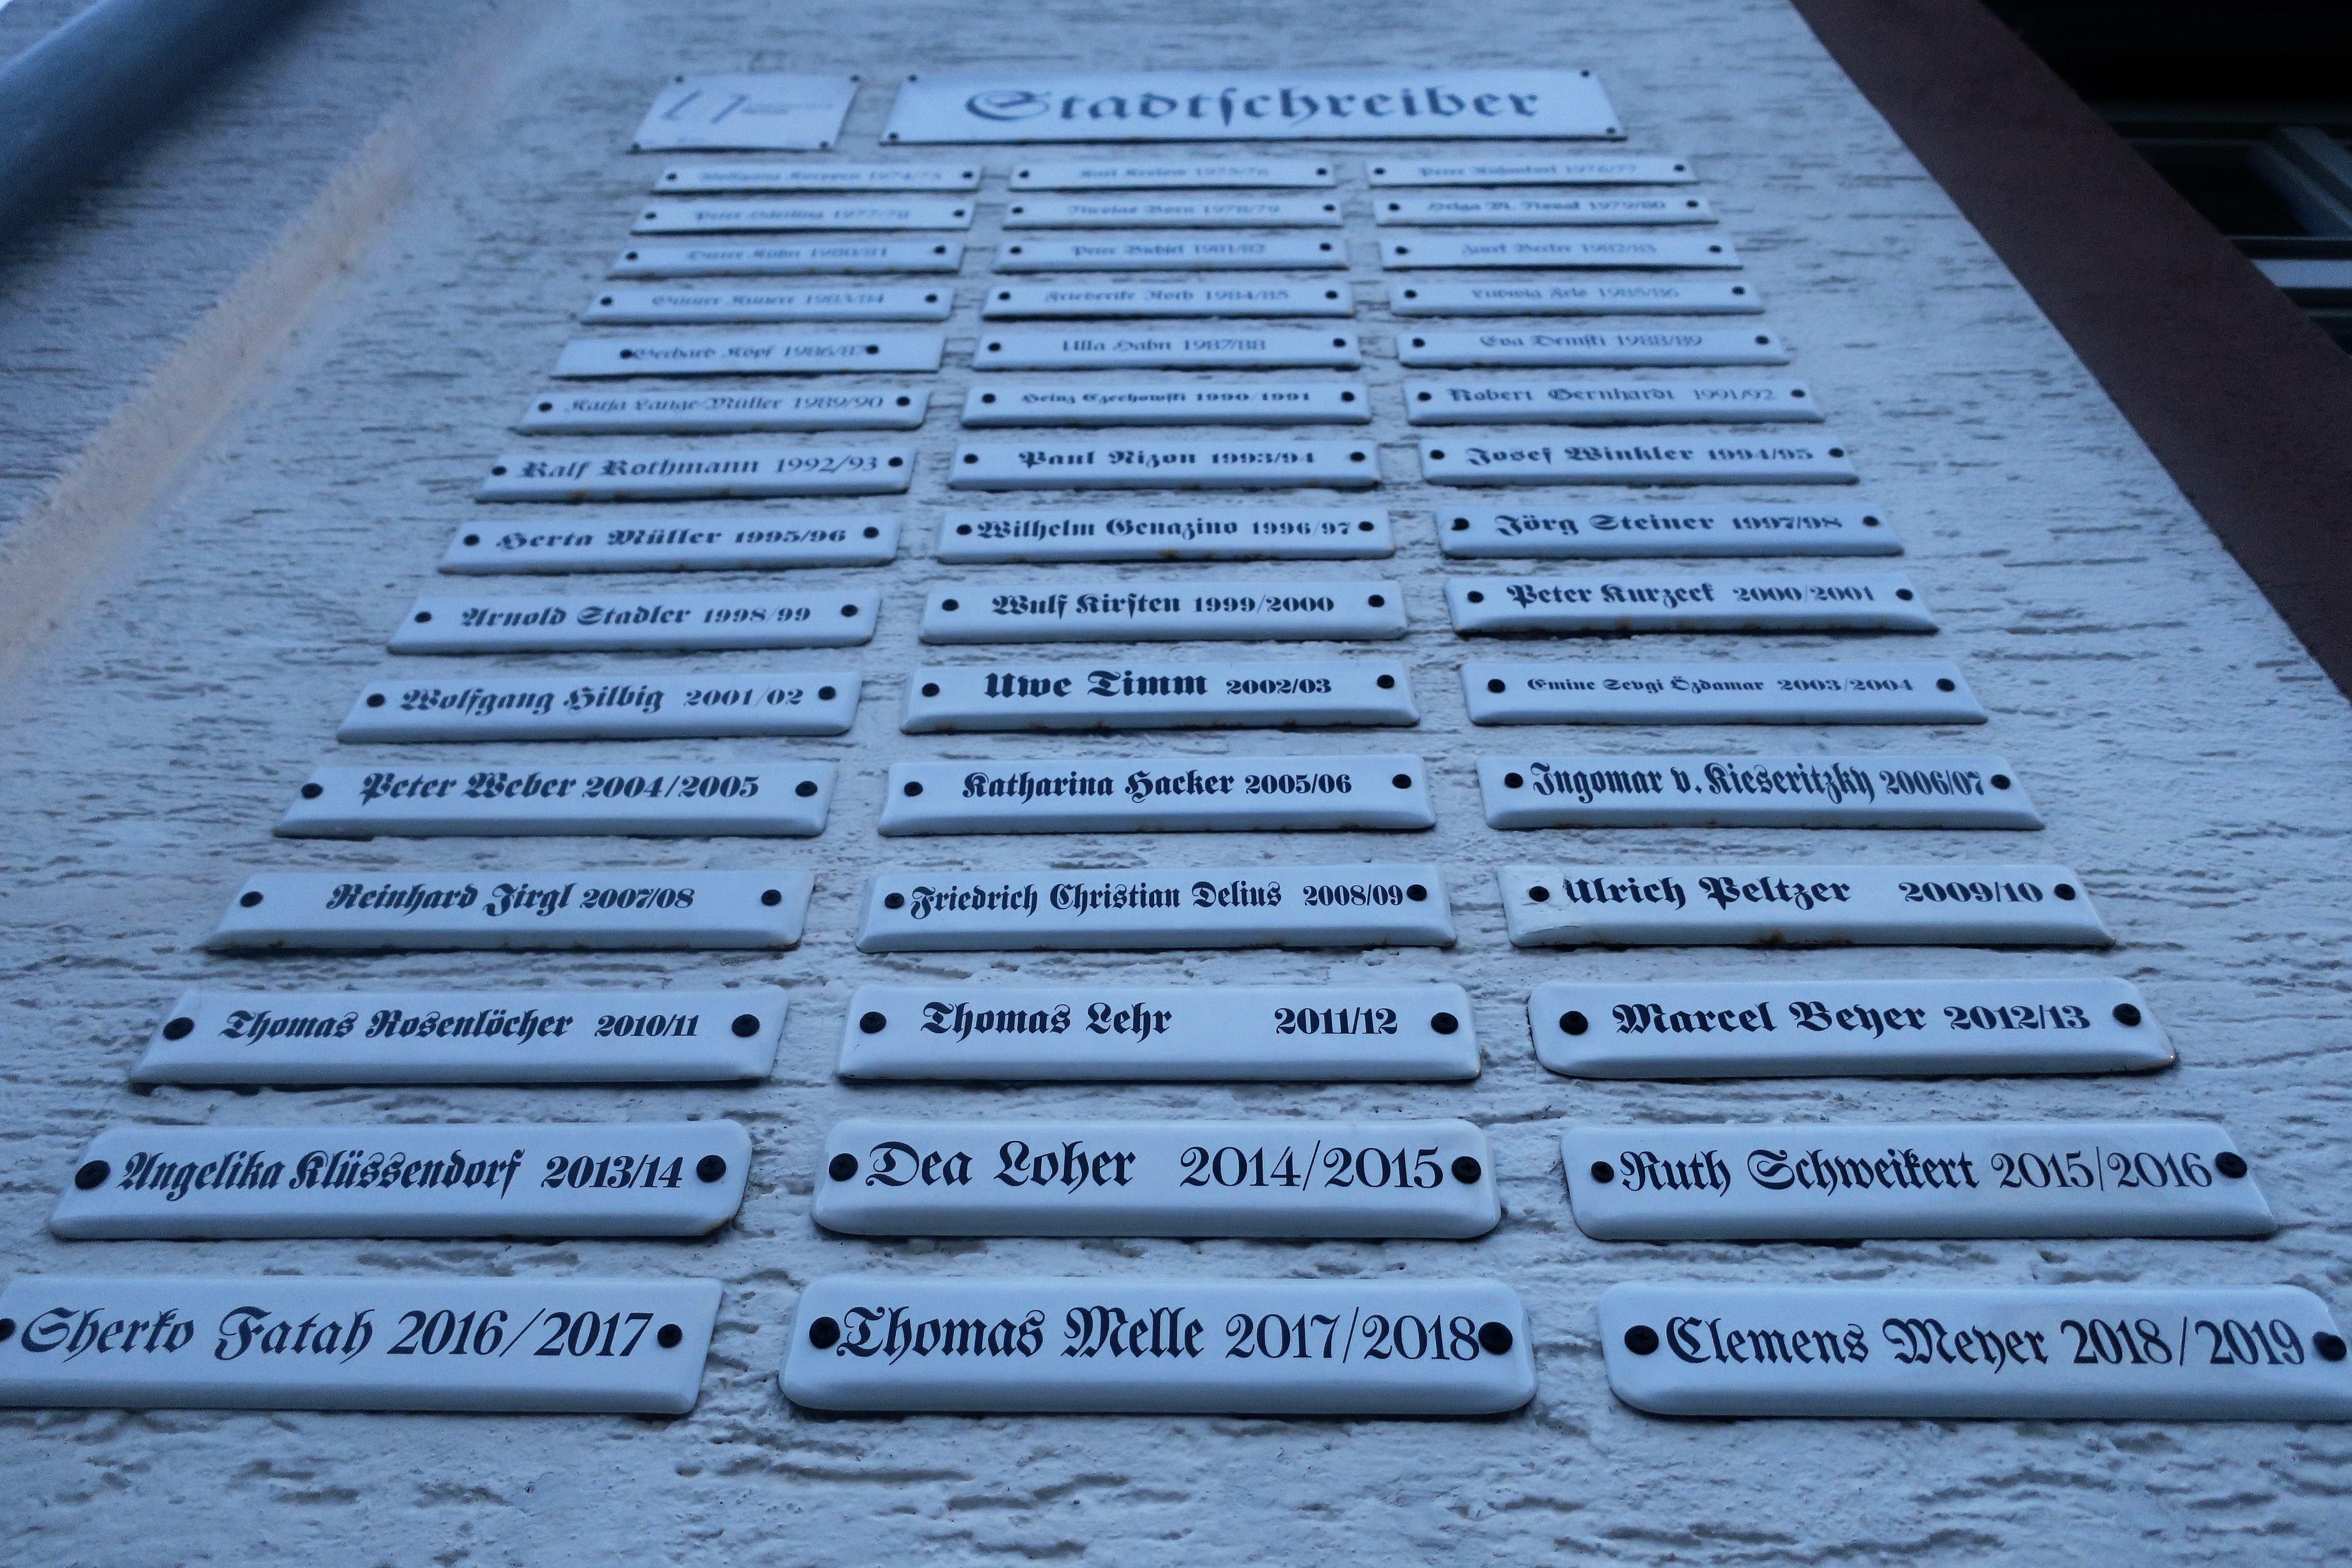 Stadtschreiber
Wolfgang Koeppen 1974/75
Karl Krolow 1975/76
Peter Rühmkorf 1976/77
Peter Härtling 1977/78
Nicolas Born 1978/79
Helga M. Novak 1979/80
Dieter Kühn 1980/81
Peter Bichsel 1981/82
Jurek Becker 1982/83
Günter Kunert 1983/84
Friederike Roth 1984/85
Ludwig Fels 1985/86
Gerhard Köpf 1986/87
Ulla Hahn 1987/88
Eva Demski 1988/89
Katja Lange-Müller 1989/90
Heinz Czechowski 1990/1991
Robert Gernhardt 1991/92
Ralf Rothmann 1992/93
Paul Nizon 1993/94
Josef Winkler 1994/95
Herta Müller 1995/96
Wilhelm Genazino 1996/97
Jörg Steiner 1997/98
Arnold Stadler 1998/99
Wulf Kirsten 1999/2000
Peter Kurzeck 2000/2001
Wolfgang Hilbig 2001/02
Uwe Timm 2002/03
Emine Sevgi Özdamar 2003/2004
Peter Weber 2004/2005
Katharina Hacker 2005/06
Ingomar v. Kieseritzky 2006/07
Reinhard Jirgl 2007/08
Friedrich Christian Delius 2008/09
Ulrich Peltzer 2009/10
Thomas Rosenlöcher 2010/11
Thomas Lehr 2011/12
Marcel Beyer 2012/13
Angelika Klüssendorf 2013/14
Dea Loher 2014/2015
Ruth Schweikert 2015/2016
Sherko Fatah 2016/2017
Thomas Melle 2017/2018
Clemens Meyer 2018/2019